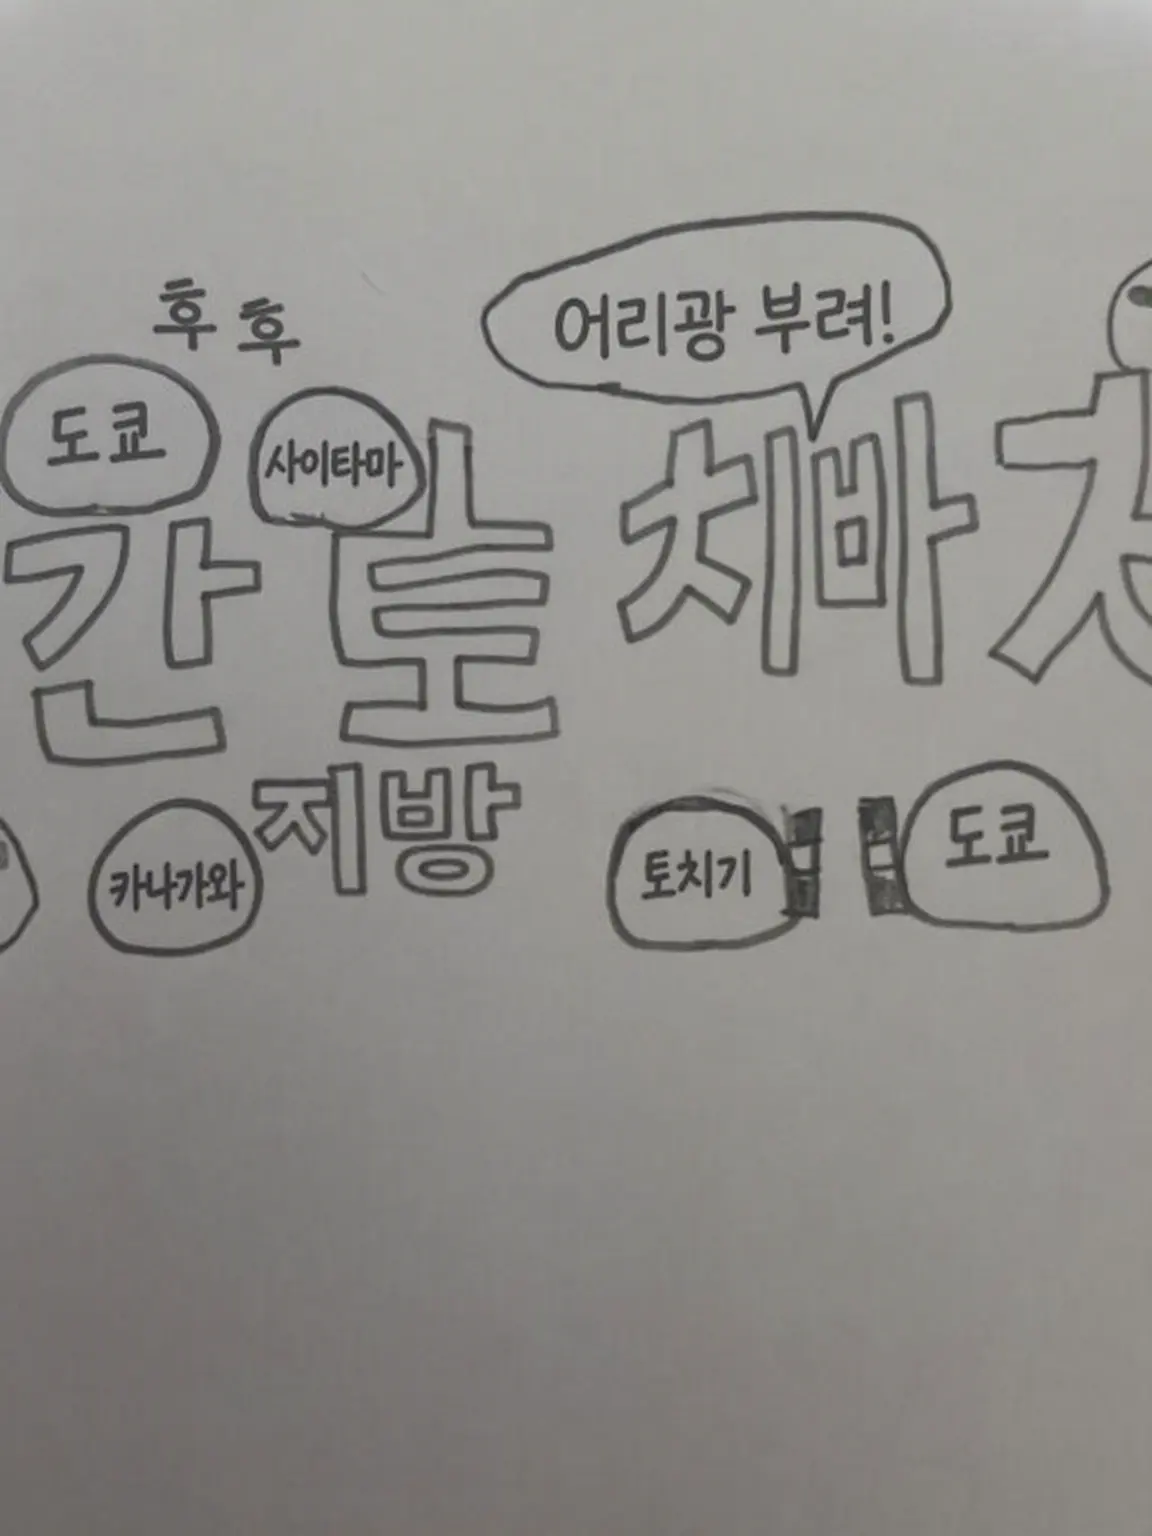 후후
어리광 부려!
도쿄
사이타마
간토
치바
지방
카나가와
토치기
도쿄